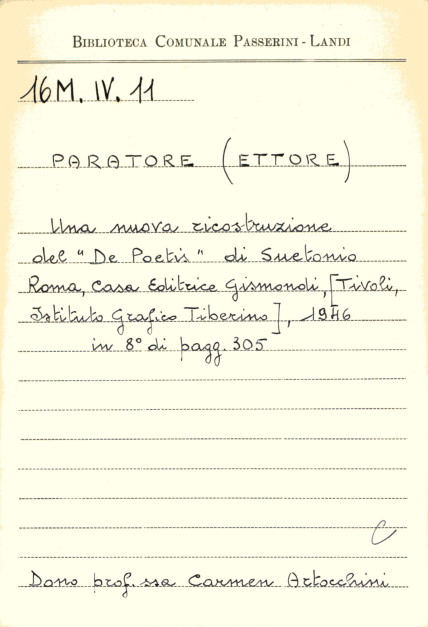 BIBLIOTECA COMUNALE PASSERINI - LANDI
16M. IV. 11
PARATORE (ETTORE)
Una nuova ricostruzione
del "De Poetis" di Suetonio
Roma, Casa Editrice Gismondi, [Tivoli,
Istituto Grafico Tiberino], 1946
in 8° di pagg. 305
C
Dono prof.ssa Carmen Artocchini